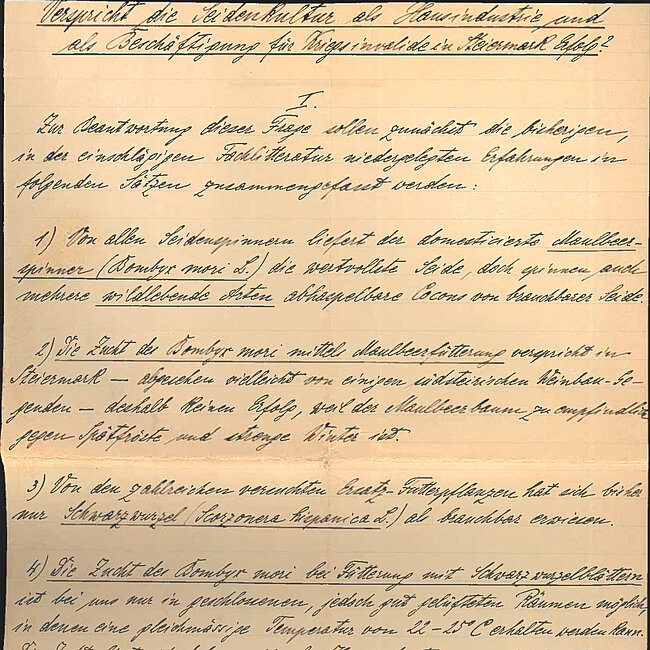 Verspricht die Seidenkultur als Hausindustrie und
als Beschäftigung für Kriegsinvalide in Steiermark Erfolg?
I.
Zur Beantwortung dieser Frage sollen zunächst die bisherigen,
in der einschlägigen Fachlitteratur niedergelegten Erfahrungen in
folgenden Sätzen zusammengefasst werden:
1) Von allen Seidenspinnern liefert der domesticierte Maulbeer-
spinner (Bombyx mori L.) die wertvollste Seide, doch spinnen auch
mehrere wildlebende Arten abhaspelbare Cocons von brauchbarer Seide.
2) Die Zucht des Bombyx mori mittels Maulbeerfütterung verspricht in
Steiermark – abgesehen vielleicht von einigen südsteirischen Weinbau-Ge-
genden – deshalb keinen Erfolg, weil der Maulbeerbaum zu empfindlich
gegen Spätfröste und strenge Winter ist.
3) Von den zahlreichen versuchten Ersatz-Futterpflanzen hat sich bisher
nur Schwarzwurzel (Scorzonera hispanica L.) als brauchbar erwiesen.
4) Die Zucht des Bombyx mori bei Fütterung mit Schwarzwurzelblättern
ist bei uns nur in geschlossenen, jedoch gut gelüfteten Räumen möglich,
in denen eine gleichmässige Temperatur von 22–25° C erhalten werden kann.